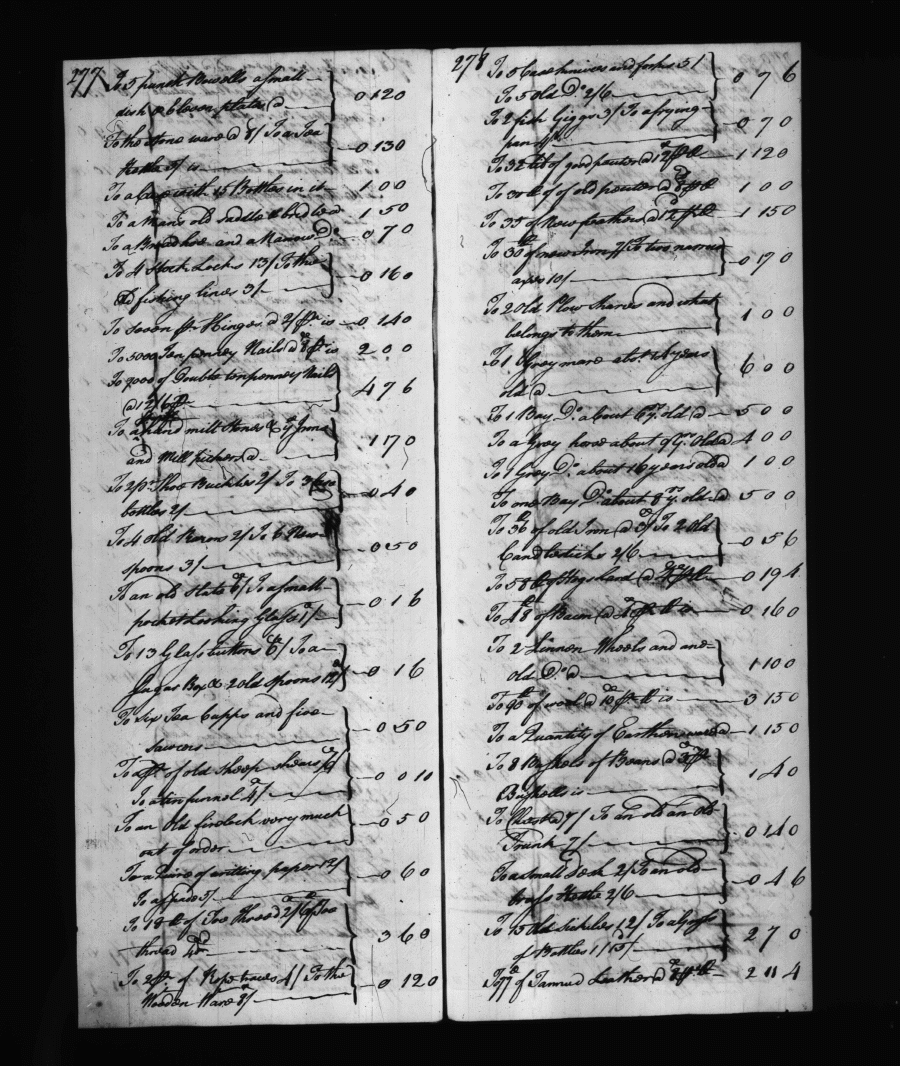 277
To 5 punch Bowells a small
dish & eleven plates @ 0 12 0
To the Stone ware @ 8/ To a Tea
Kettle 5/ is 0 13 0
To a Case with 15 Bottles in it 1 0 0
To a Mans old saddle & bridle @ 1 5 0
To a Broad hoe and a Narrow Do 0 7 0
To 4 Stock Locks 13/ To the
old fishing lines 3/ 0 16 0
To seven pr Hinges @ 2/ pr is 0 14 0
To 5000 Ten penney Nails @ 8/ is 2 0 0
To 7000 of Double tenpenney Nails
@ 12/6 pr 4 7 6
To a hand mill Stones & ye Irons
and Mill pickers @ 1 7 0
To 2 pr Shoe Buckles 2/ To 3 Case
bottles 2/ 0 4 0
To 4 old Razors 2/ To 6 New
spoons 3/ 0 5 0
To an old Slate 6d/ To a small
pocket Looking Glass 1/ 0 1 6
To 13 Glass buttons 6d/ To a
Sugar Box & 2 old spoons 12d/ 0 1 6
To Six Tea Cupps and five
Sawcers 0 5 0
To a pr of old Sheep shears 6d/
To a tin funnel 4d/ 0 0 10
To an Old firelock very much
out of order 0 5 0
To a Quire of writting paper 12d/
To a spade 5/ 0 6 0
To 18 lb of Tow Thread 2/6 of Tow
thread 3 6 0
To 2 pr of Rope traces 4/ To the
Wooden Ware 8/ 0 12 0
278
To 5 Case knives and forks 5/
To 5 old Do 2/6 0 7 6
To 2 fish Giggs 3/ To a frying
pan 4/ 0 7 0
To 32 lb of good peuter @ 12d pr lb 1 12 0
To 30 lb of old peuter @ 8d pr lb 1 0 0
To 35 of New feathers @ 12d pr lb 1 15 0
To 30 lb of new Iron To two narrow
axes 10/ 0 7 0
To 2 Old Plow Shares and what
belongs to them 1 0 0
To 1 Grey mare abot 14 years
old @ 6 0 0
To 1 Bay Do about 6 yr old @ 5 0 0
To a Grey horse about 9 Yr Old @ 4 0 0
To 1 Grey Do about 16 years old @ 1 0 0
To one Bay Do about 8 yr old @ 5 0 0
To 36 lb of old Iron @ To 2 Old
Candlesticks 2/6 0 5 6
To 58 lb of Hogs lard @ 4d pr lb 0 19 4
To 48 lb of Bacon @ 4d pr lb is 0 16 0
To 2 Linnen Wheels and one
old Do @ 1 10 0
To 90 lb of wool @ 10d pr lb is 3 15 0
To a Quantity of Earthenware @ 1 15 0
To 8 Bushels of Beans @ 3/ pr
Bushells is 1 4 0
To Chest @ 7/ To an old an Old
Trunk 7/ 0 14 0
To a small Desk 2/ To an old
brass Kettle 2/6 0 4 6
To 15 Old Sickles 12/ To a Gross
of Bottles 1/15/ 2 7 0
To 77 lb of Tannd Leather @ 8d pr lb 2 11 4